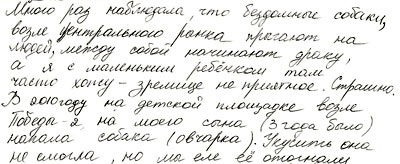 Много раз наблюдала, что бездомные собаки,
возле центрального рынка прыгают на
людей, между собой начинают драку,
а я с маленьким ребёнком там
часто хожу - зрелище не приятное. Страшно.
В 2010 году на детской площадке возле
Победы-2 на моего сына (3 года было)
напала собака (овчарка). Укусить она
не смогла, но мы еле её отогнали